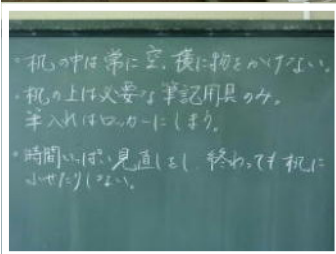 ・机の中は常に空、横に物をかけない。
・机の上は必要な筆記用具のみ。
筆入れはロッカーにしまう。
・時間いっぱい見直しをし、終わっても机に
ふせたりしない。